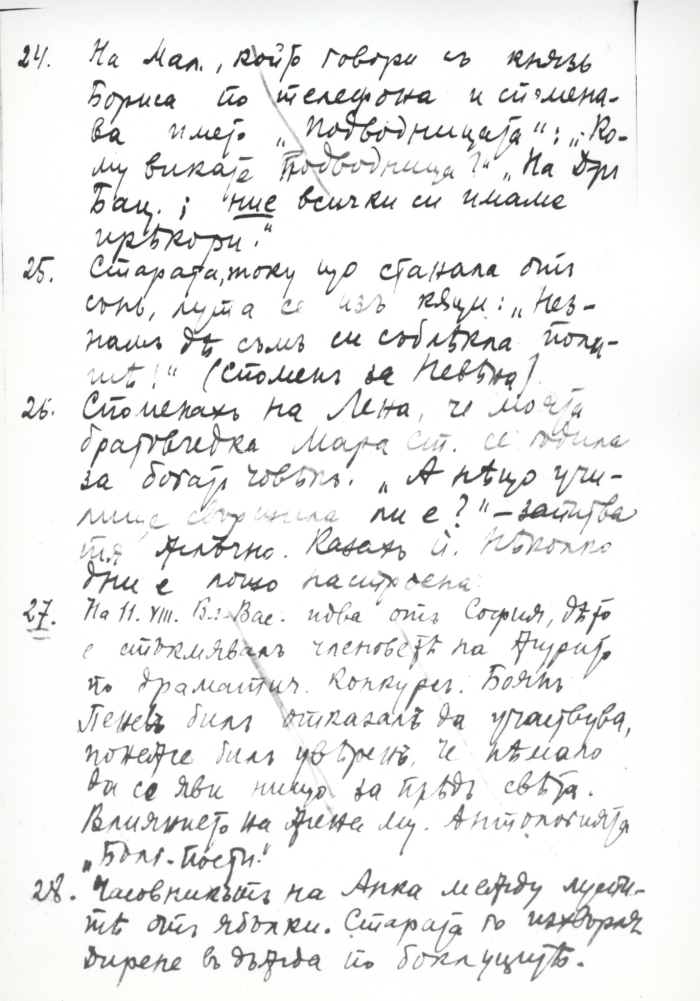 24. На Мал., който говори съ князь
Бориса по телефона и спомена-
ва името „Подводницата“: „Ко-
му викате Подводница?“ „На Др
Бац.; ние всички си имаме
прѣкори.“
25. Старата, току що станала отъ
сънь, лута се изъ кѫщи: „Нез-
намъ дѣ съмъ си соблѣкла полу-
тѣ!“ (Споменъ за Невѣна)
26. Споменахъ на Лена, че моята
братовчедка Мара Ст. се годила
за богатъ човѣкъ. „А нѣщо учи-
лище свършила ли е?“ – запитва
тя жлъчно. Казахъ й. Нѣколко
дни е лошо настроена.
27. На 11. VIII. Вл. Вас. иова отъ София, дѣто
е стъкмявалъ членоветѣ на журито
по драматич. конкурс. Боянъ
Пеневъ билъ отказалъ да участвува,
понеже билъ увѣренъ, че нѣмало
да се яви нищо за прѣдъ свѣта.
Влиянието на жена му. Антологията
„Бълг. поети.“
28. Часовникътъ на Анка между люспи-
тѣ отъ ябълки. Старата го изхвърля
Дирене въ дъжда по боклуцитѣ.